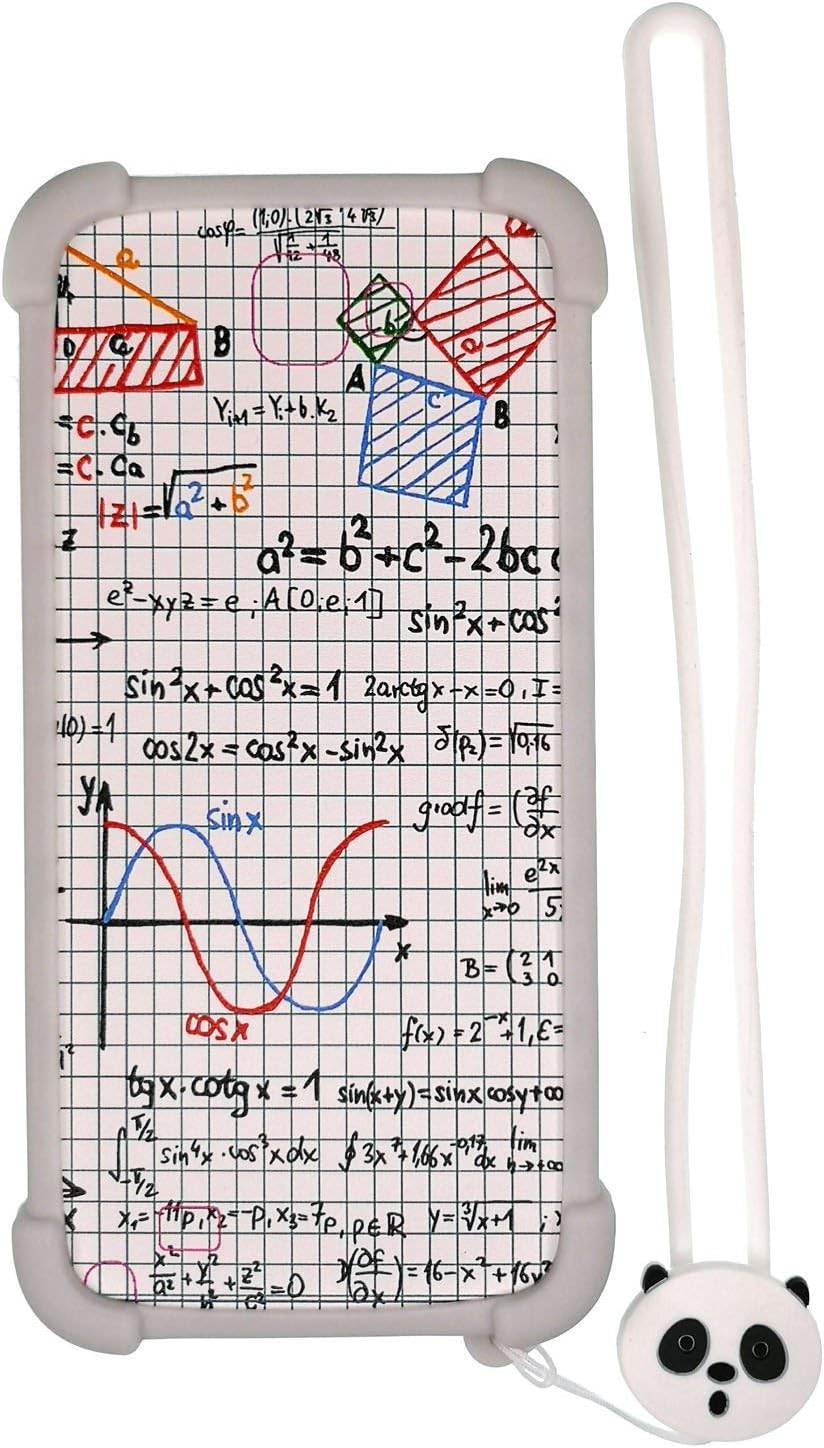 cosφ= (1,0).(2√3 4√3) / √(1/12 + 1/48)
a
b
a
a
B
D Ca
A
c
B
Yi+1=Yi+b.K2
=c.cb
=c.ca
|z|=√a²+b²
z
a²=b²+c²-2bc c
e²-xyz=e;A[0;e;1]
sin²x+cos²
sin²x+cos²x=1 2arctgx-x=0,I=
(0)=1
cos2x=cos²x-sin²x δ(p₂)=√0,16
y
sinx
gradf=(∂f/∂x
lim x→0 e²ˣ/5
x
B=(2 1
3 0
cosx
f(x)=2⁻ˣ+1,ε=
tgx·cotgx=1 sin(x+y)=sinxcosy+co
∫-π/2 π/2 sin⁴x·cos³xdx ∮3x⁷+1,66x⁻⁰'¹⁷dx lim n→+∞
x₁=-11p,x₂=-p,x₃=7p,p∈R y=∛x+1 ;
x²/a²+y²/b²+z²/c²=0 (∂f/∂x)=16-x²+16y²